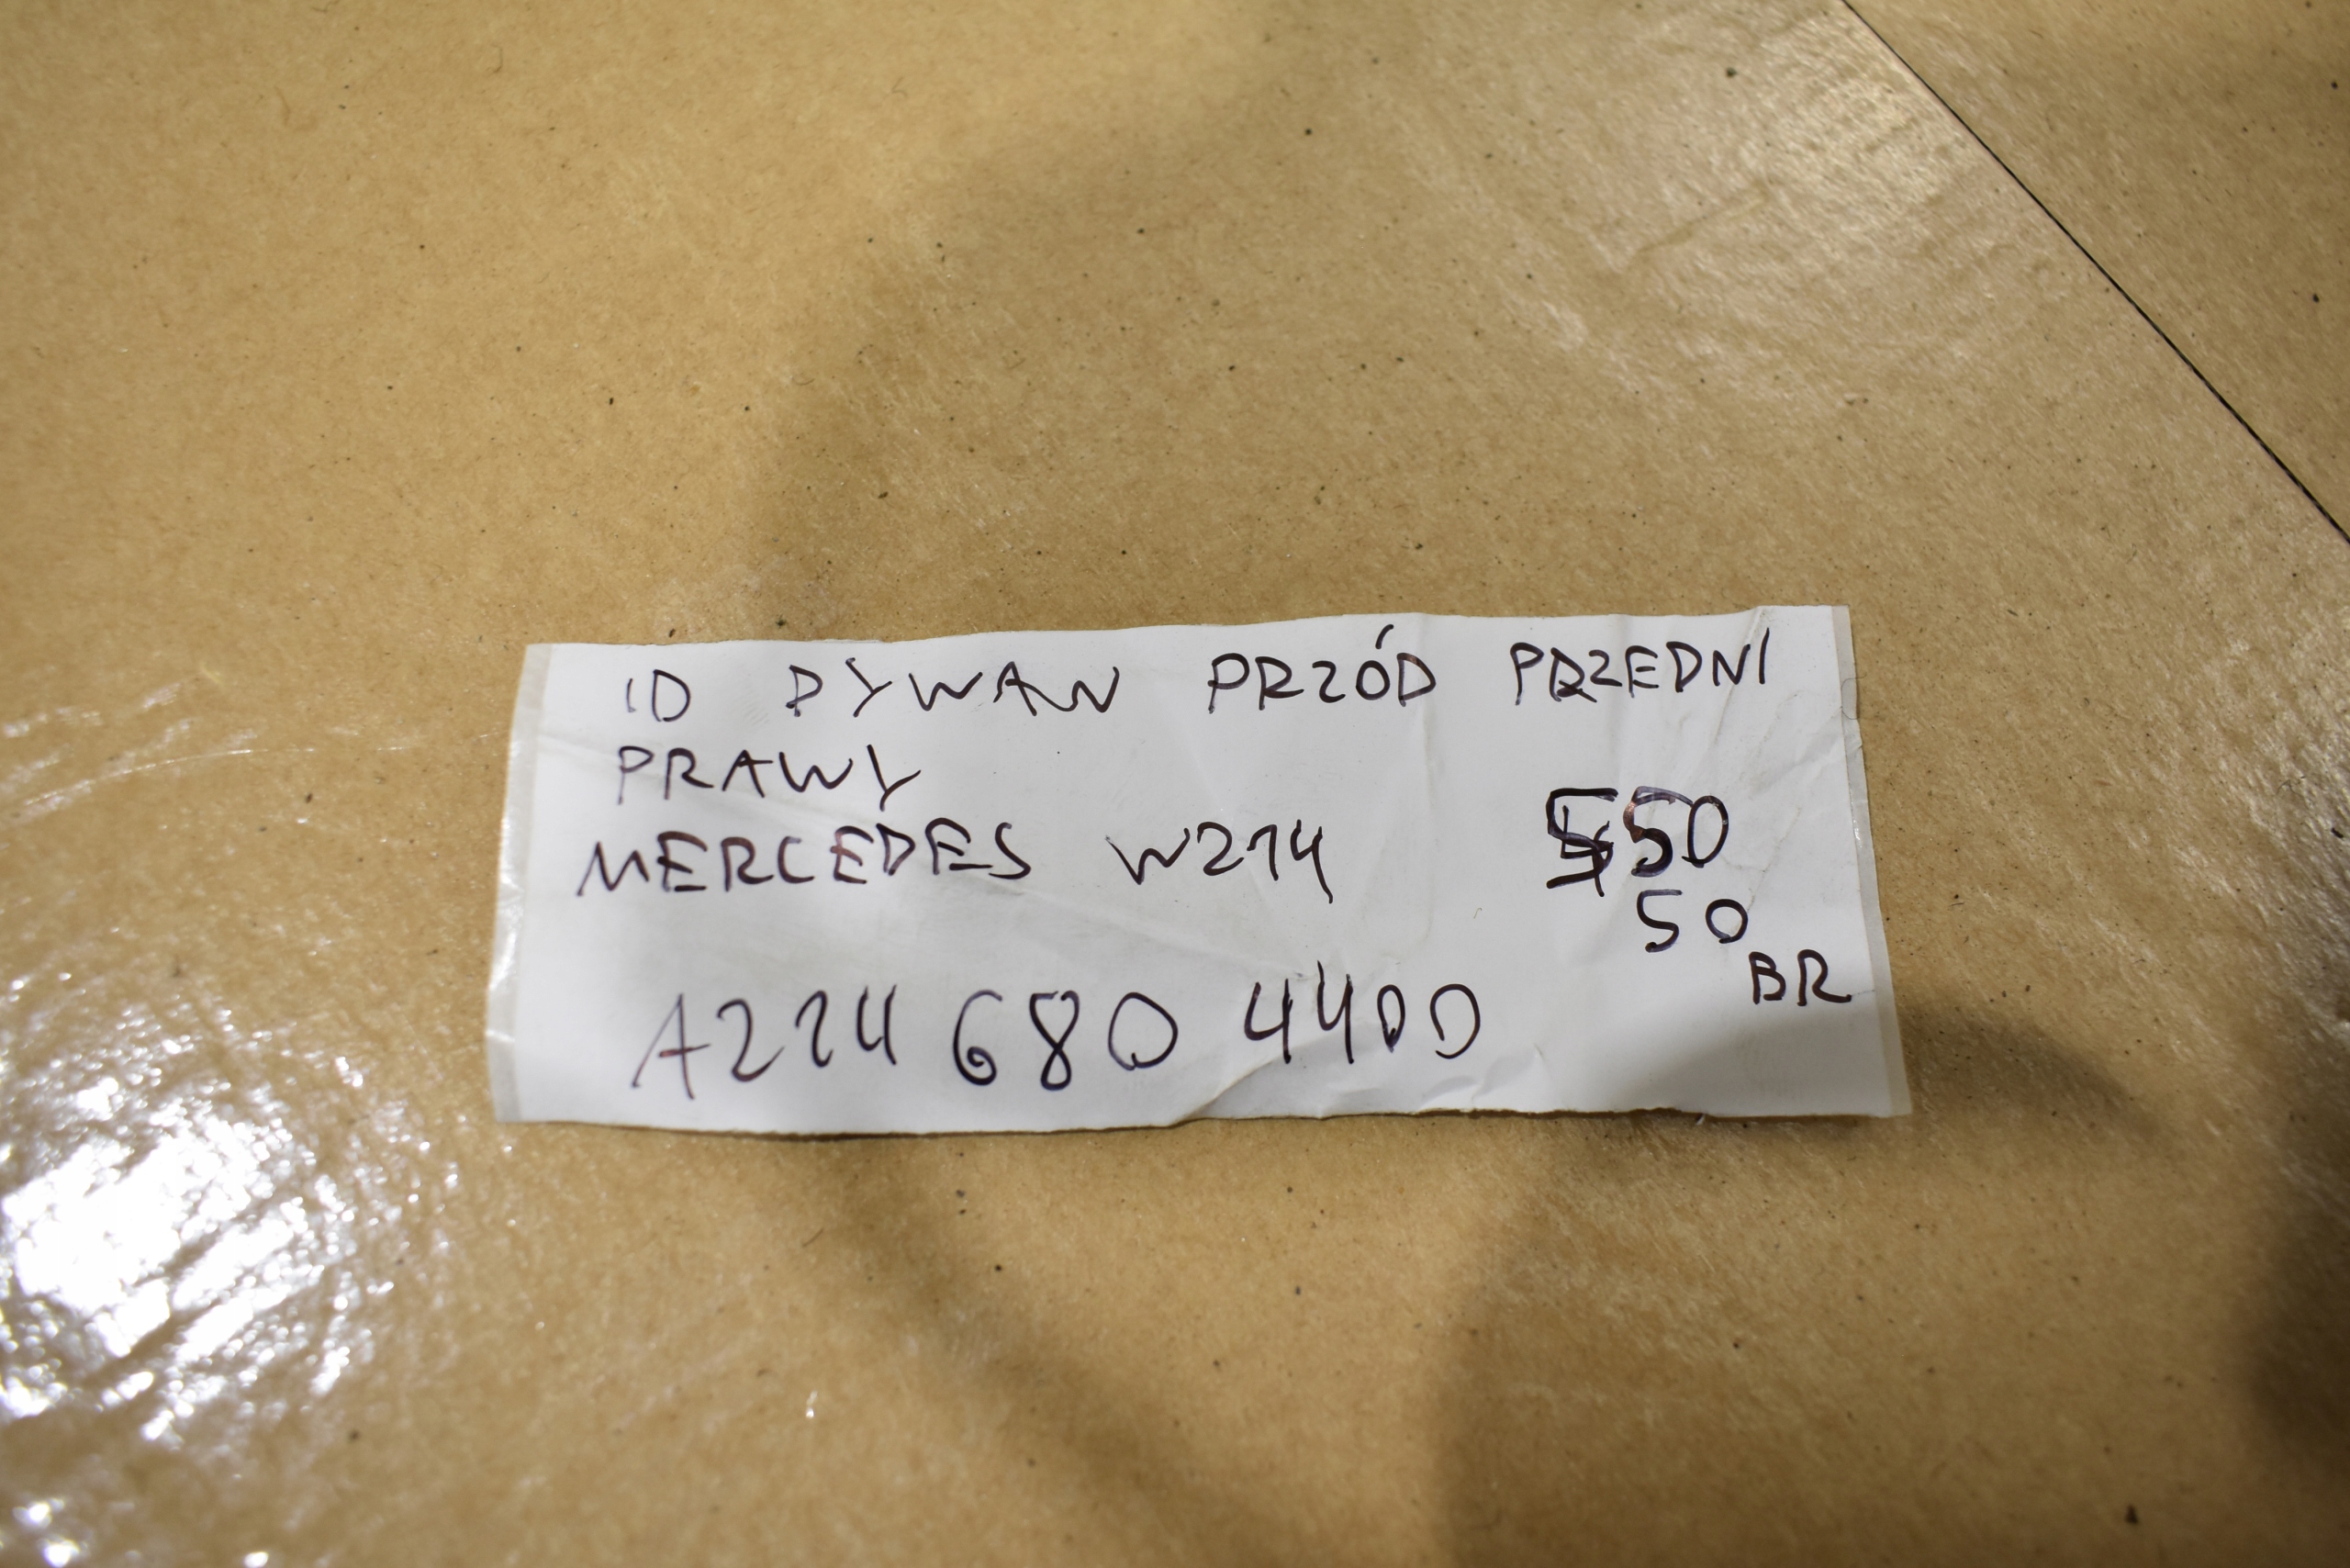 ID DYWAN PRZÓD PRZEDNI
PRAWY
MERCEDES W214 550
50
BR
A214 680 4400